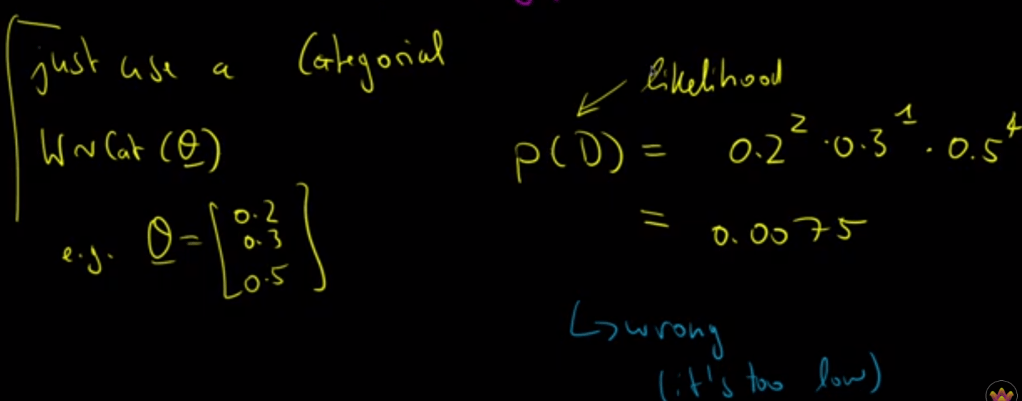 just use a Categorial
W ~ Cat (θ)
e.g. θ = [0.2
0.3
0.5]
likelihood
p(D) = 0.2² · 0.3¹ · 0.5⁴
= 0.0075
↳ wrong
(it's too low)